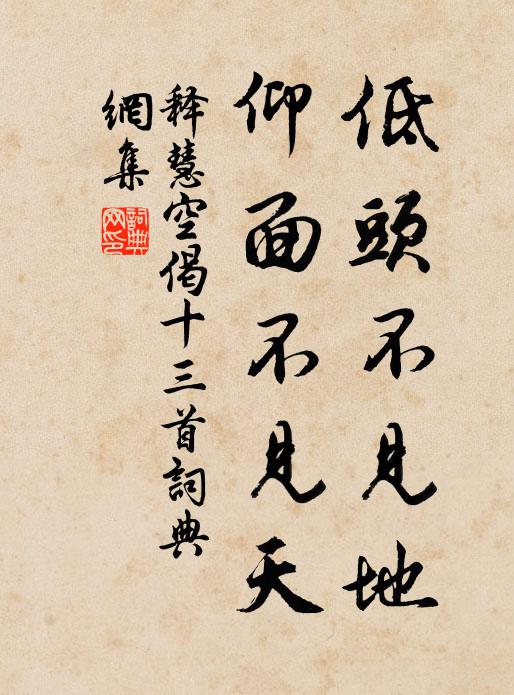 低頭不見地
仰面不見天
释慧空偈十三首詞典
網集
詞典
网印